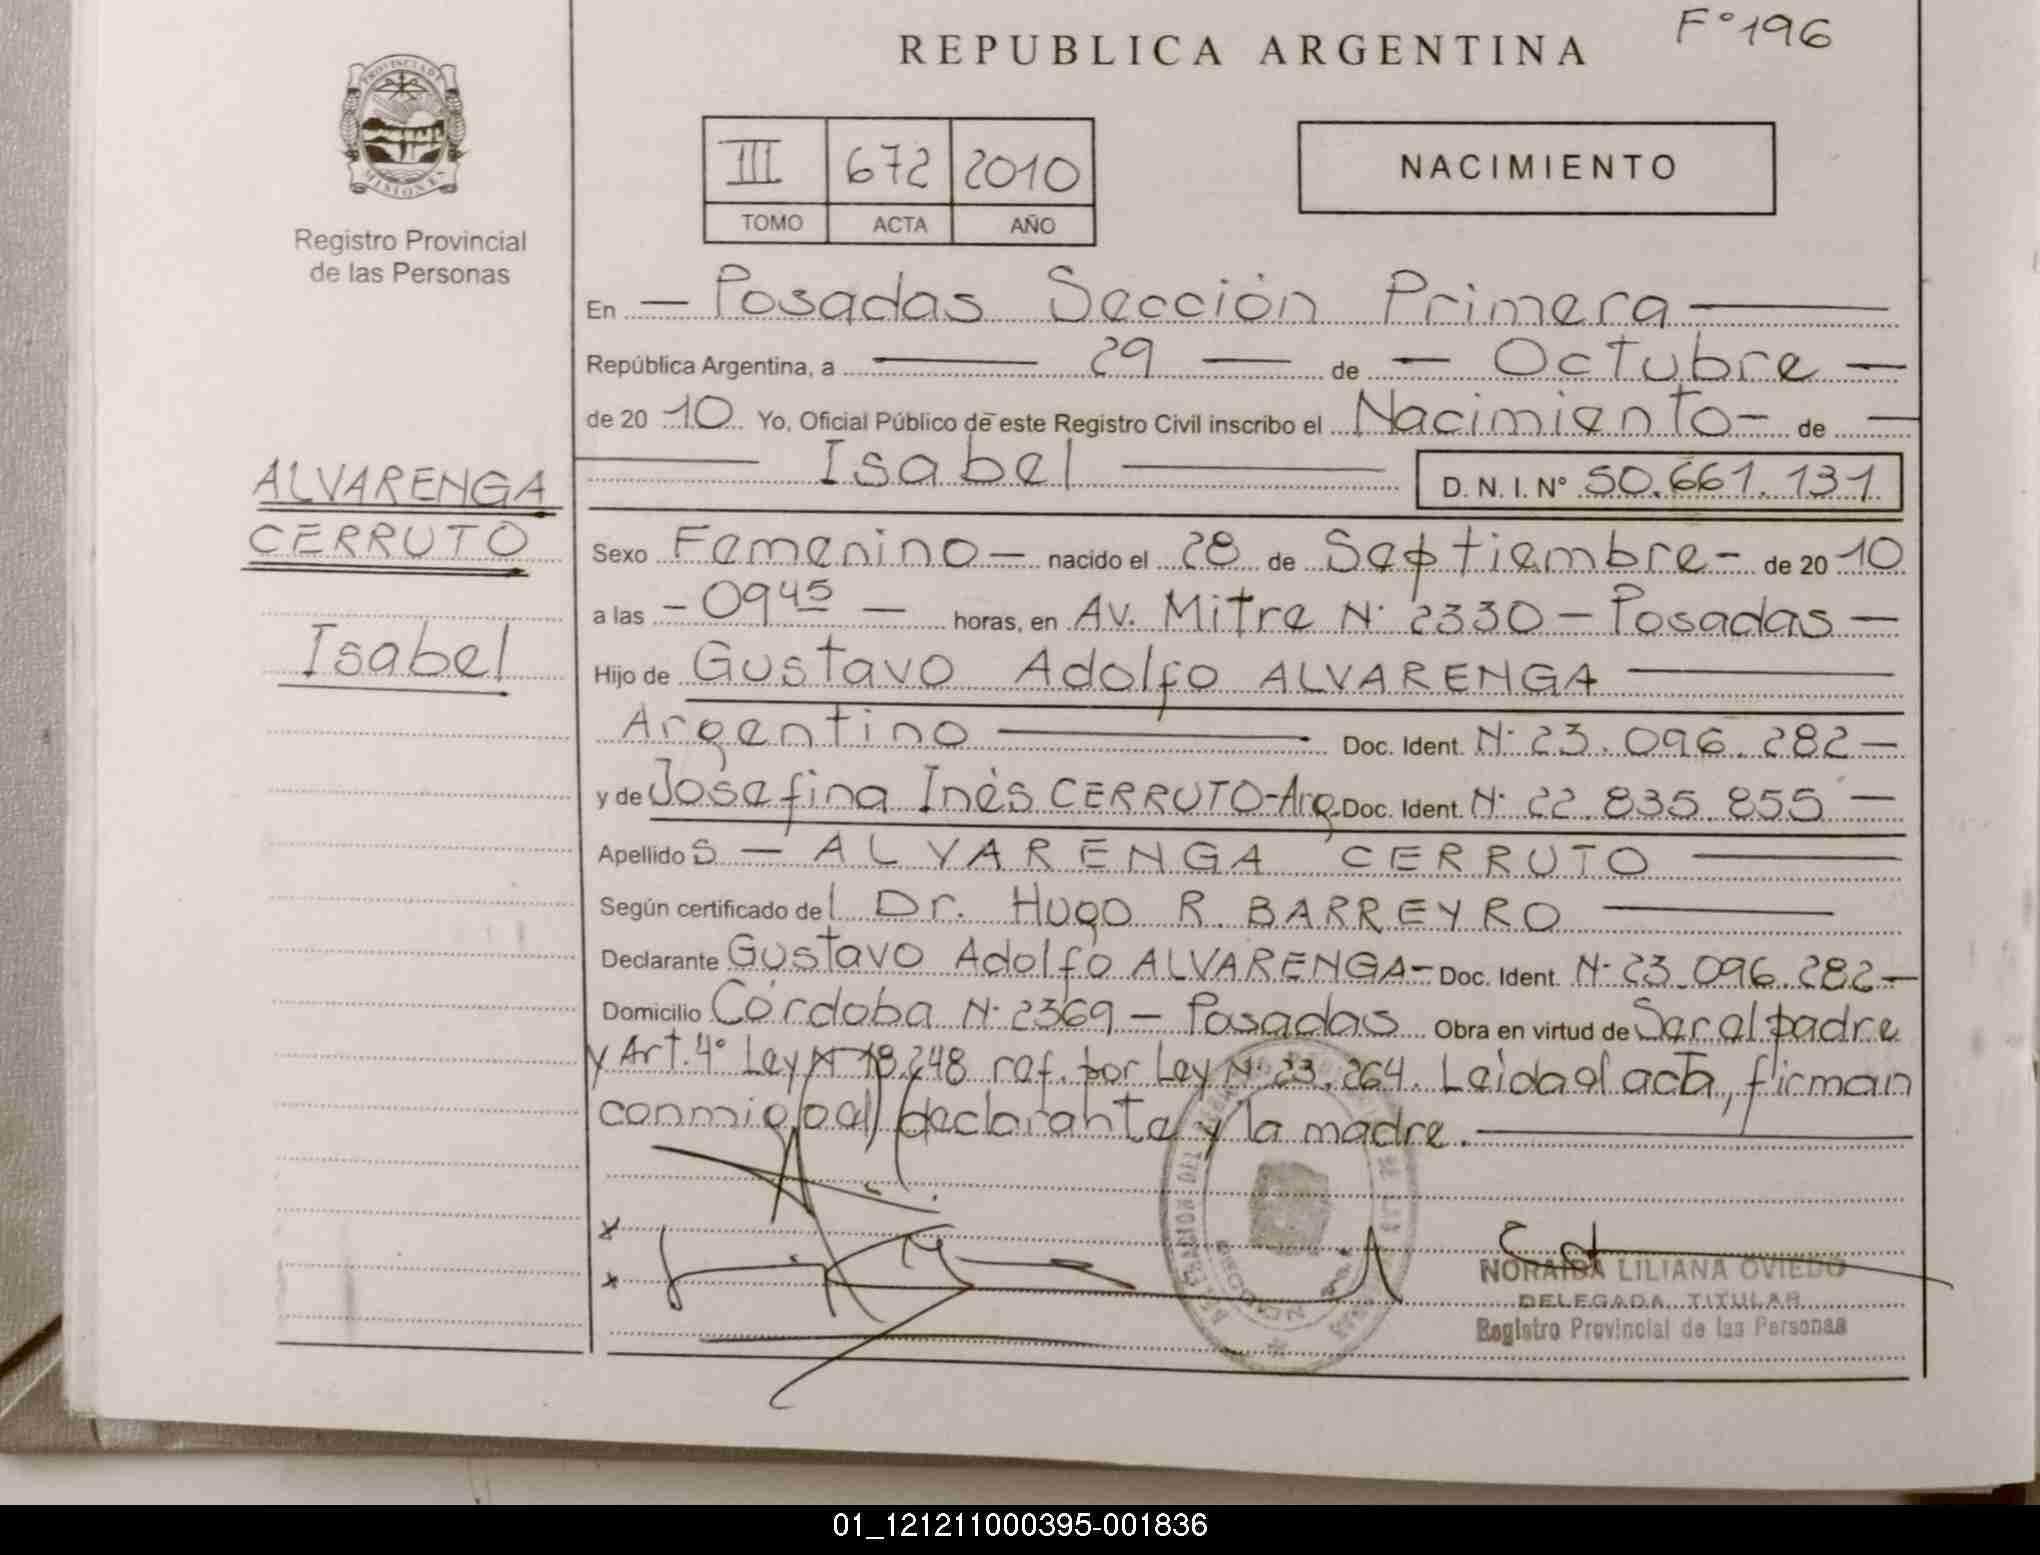 F° 196
REPUBLICA ARGENTINA
PROVINCIA DE
MISIONES
Registro Provincial
de las Personas
III 672 2010
TOMO ACTA AÑO
NACIMIENTO
En — Posadas Sección Primera —
República Argentina, a — 29 — de — Octubre —
de 2010 Yo, Oficial Público de este Registro Civil inscribo el Nacimiento — de —
— Isabel — D. N. I. N° 50.661.131
ALVARENGA
CERRUTO
Isabel
Sexo Femenino — nacido el 28 de Septiembre — de 2010
a las — 09 45 — horas, en Av. Mitre N° 2330 — Posadas —
Hijo de Gustavo Adolfo ALVARENGA —
Argentino — Doc. Ident. N° 23.096.282 —
y de Josefina Inés CERRUTO - Arg. Doc. Ident. N° 22.835.855 —
Apellidos — ALVARENGA CERRUTO —
Según certificado del Dr. Hugo R. BARREYRO —
Declarante Gustavo Adolfo ALVARENGA — Doc. Ident. N° 23.096.282 —
Domicilio Córdoba N° 2369 — Posadas Obra en virtud de Ser el padre
y Art. 4° Ley N° 18.248 ref. por Ley N° 23.264. Leida el acta, firman
conmigo el declarante y la madre. —
x
x
NORAIDA LILIANA OVIEDO
DELEGADA TITULAR
Registro Provincial de las Personas
01_121211000395-001836